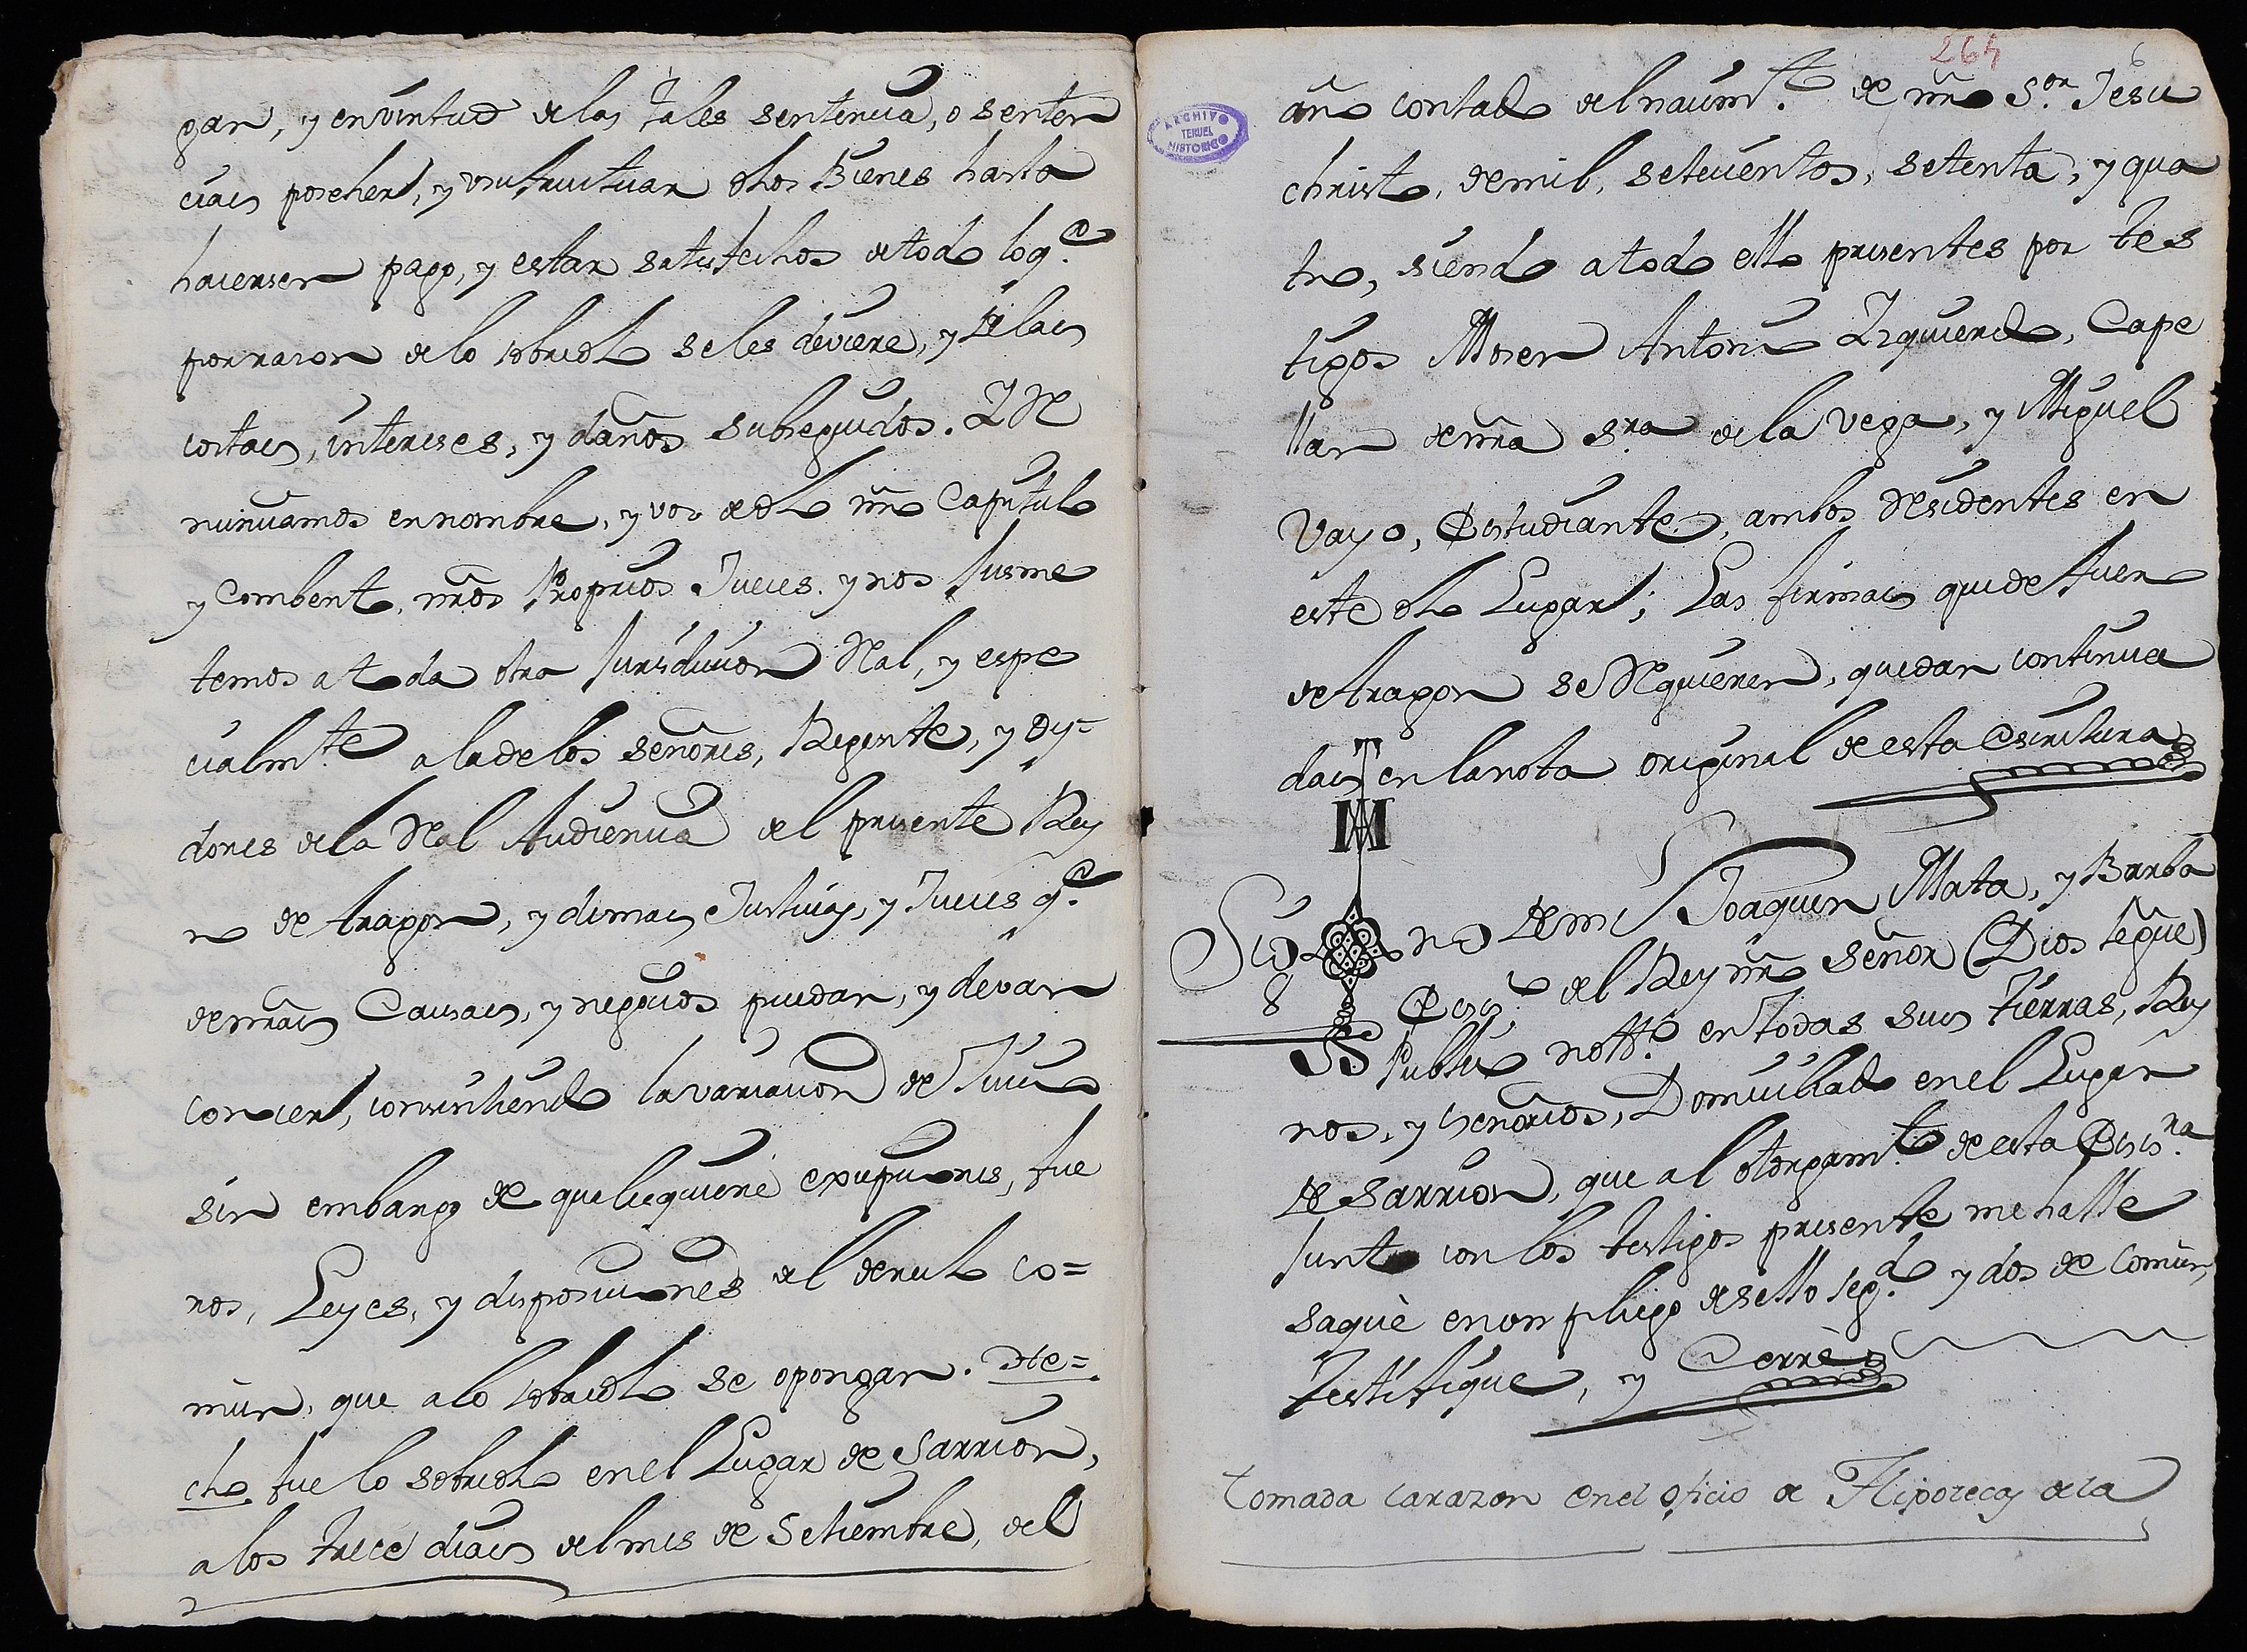 gan, y en virtud de las tales sentencia, o senten
cias poseher, y usufructuar dhos Bienes hasta
hacersen pago, y estar satisfechos de todo lo q.e
por razon de lo sobredho se les deviere, y de las
costas, intereses, y daños subseguidos. Y Re
nunciamos en nombre, y voz de dho nro Capitulo
y Combento, nros Proprios Jueces. y nos Jusme
temos a toda otra Jurisdiccion Real, y espe
cialm.te a la de los señores, Regente, y Oy=
dores de la Real Audiencia del presente Rey
no de Aragon, y demas Justicias, y Jueces q.e
de nras Causas, y negocios puedan, y devan
conocer, consintiendo la variacion de Juicio
sin embargo de qualesquiere excepciones, fue
ros, Leyes, y disposiciones del derecho co=
mun, que a lo sobredho se opongan. He=
cho fue lo sobredho en el Lugar de Sarrion,
a los trece dias del mes de Setiembre, del
264
6
año contado del nacim.to de nro S.or Jesu
christo, de mil, setecientos, setenta, y qua
tro, siendo a todo ello presentes por tes
tigos Mosen Antonio Izquierdo, Cape
llan de nra S.ra de la Vega, y Miguel
Vayo, Estudiante, ambos Residentes en
este dho Lugar; Las firmas que de fuero
de Aragon se Requieren, quedan continua
das en la nota original de esta escritura
ARCHIVO
TERUEL
HISTORICO
Sig no de mi Joaquin Mata, y Barba
Ess.no del Rey nro señor (Dios le gûe)
Publico nott.o en todas sus Tierras, Rey
nos, y señorios, Domiciliado en el Lugar
de Sarrion, que al otorgam.to de esta Ess.ra
Junto con los testigos presente me halle
saquè en un pliego de sello seg.do y dos de comun,
Testifique, y Cerrè
tomada la razon en el oficio de Hipotecas de la